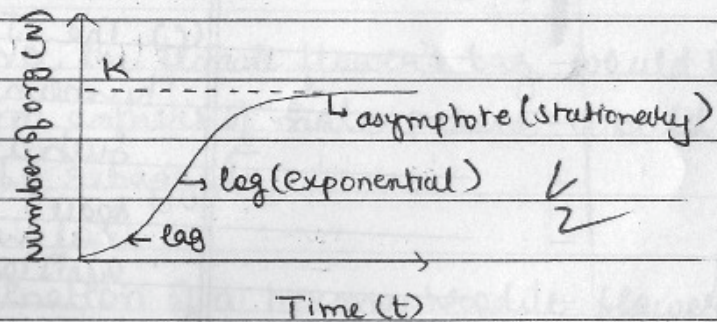 Number of org (N)
K
asymptote (stationedy)
log (exponential)
lag
2
Time (t)